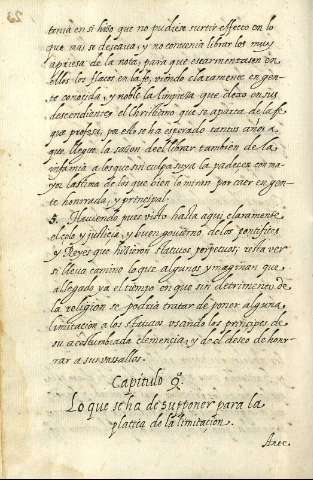 tenia en si hizo que no pudiese surtir effecto en lo
que mas se deseaua, y no conuenia librar los muy
apriesa de la nota, para que escarmentasen en
ellos los flacos en la fe, viendo claramente en gen-
te conocida, y noble la limpieza que dexo en sus
descendientes el Christiano que se aparta de la fe
que profesa, por ello se ha esperado tantos años a
que llegue la sazon de librar tambien de la
infamia a los que sin culpa suya la padecen con ma-
yor lastima de los que bien lo miran por caer en gen-
te honrrada, y principal.
5. Hauiendo pues visto hasta aqui claramente
el celo y justicia, y buen gouierno de los pontifices
y Reyes que hisieron statutos perpetuos, resta ver
si lleua camino lo que algunos ymaginan que
a llegado ya el tiempo en que sin detrimento de
la religion se podria tratar de poner alguna
limitacion a los statutos usando los principes de
su acostumbrada clemencia, y de el deseo de honr-
rar a sus vasallos.
Capitulo 9.
Lo que se ha de supponer para la
platica de la limitaçion.
Ante.
23